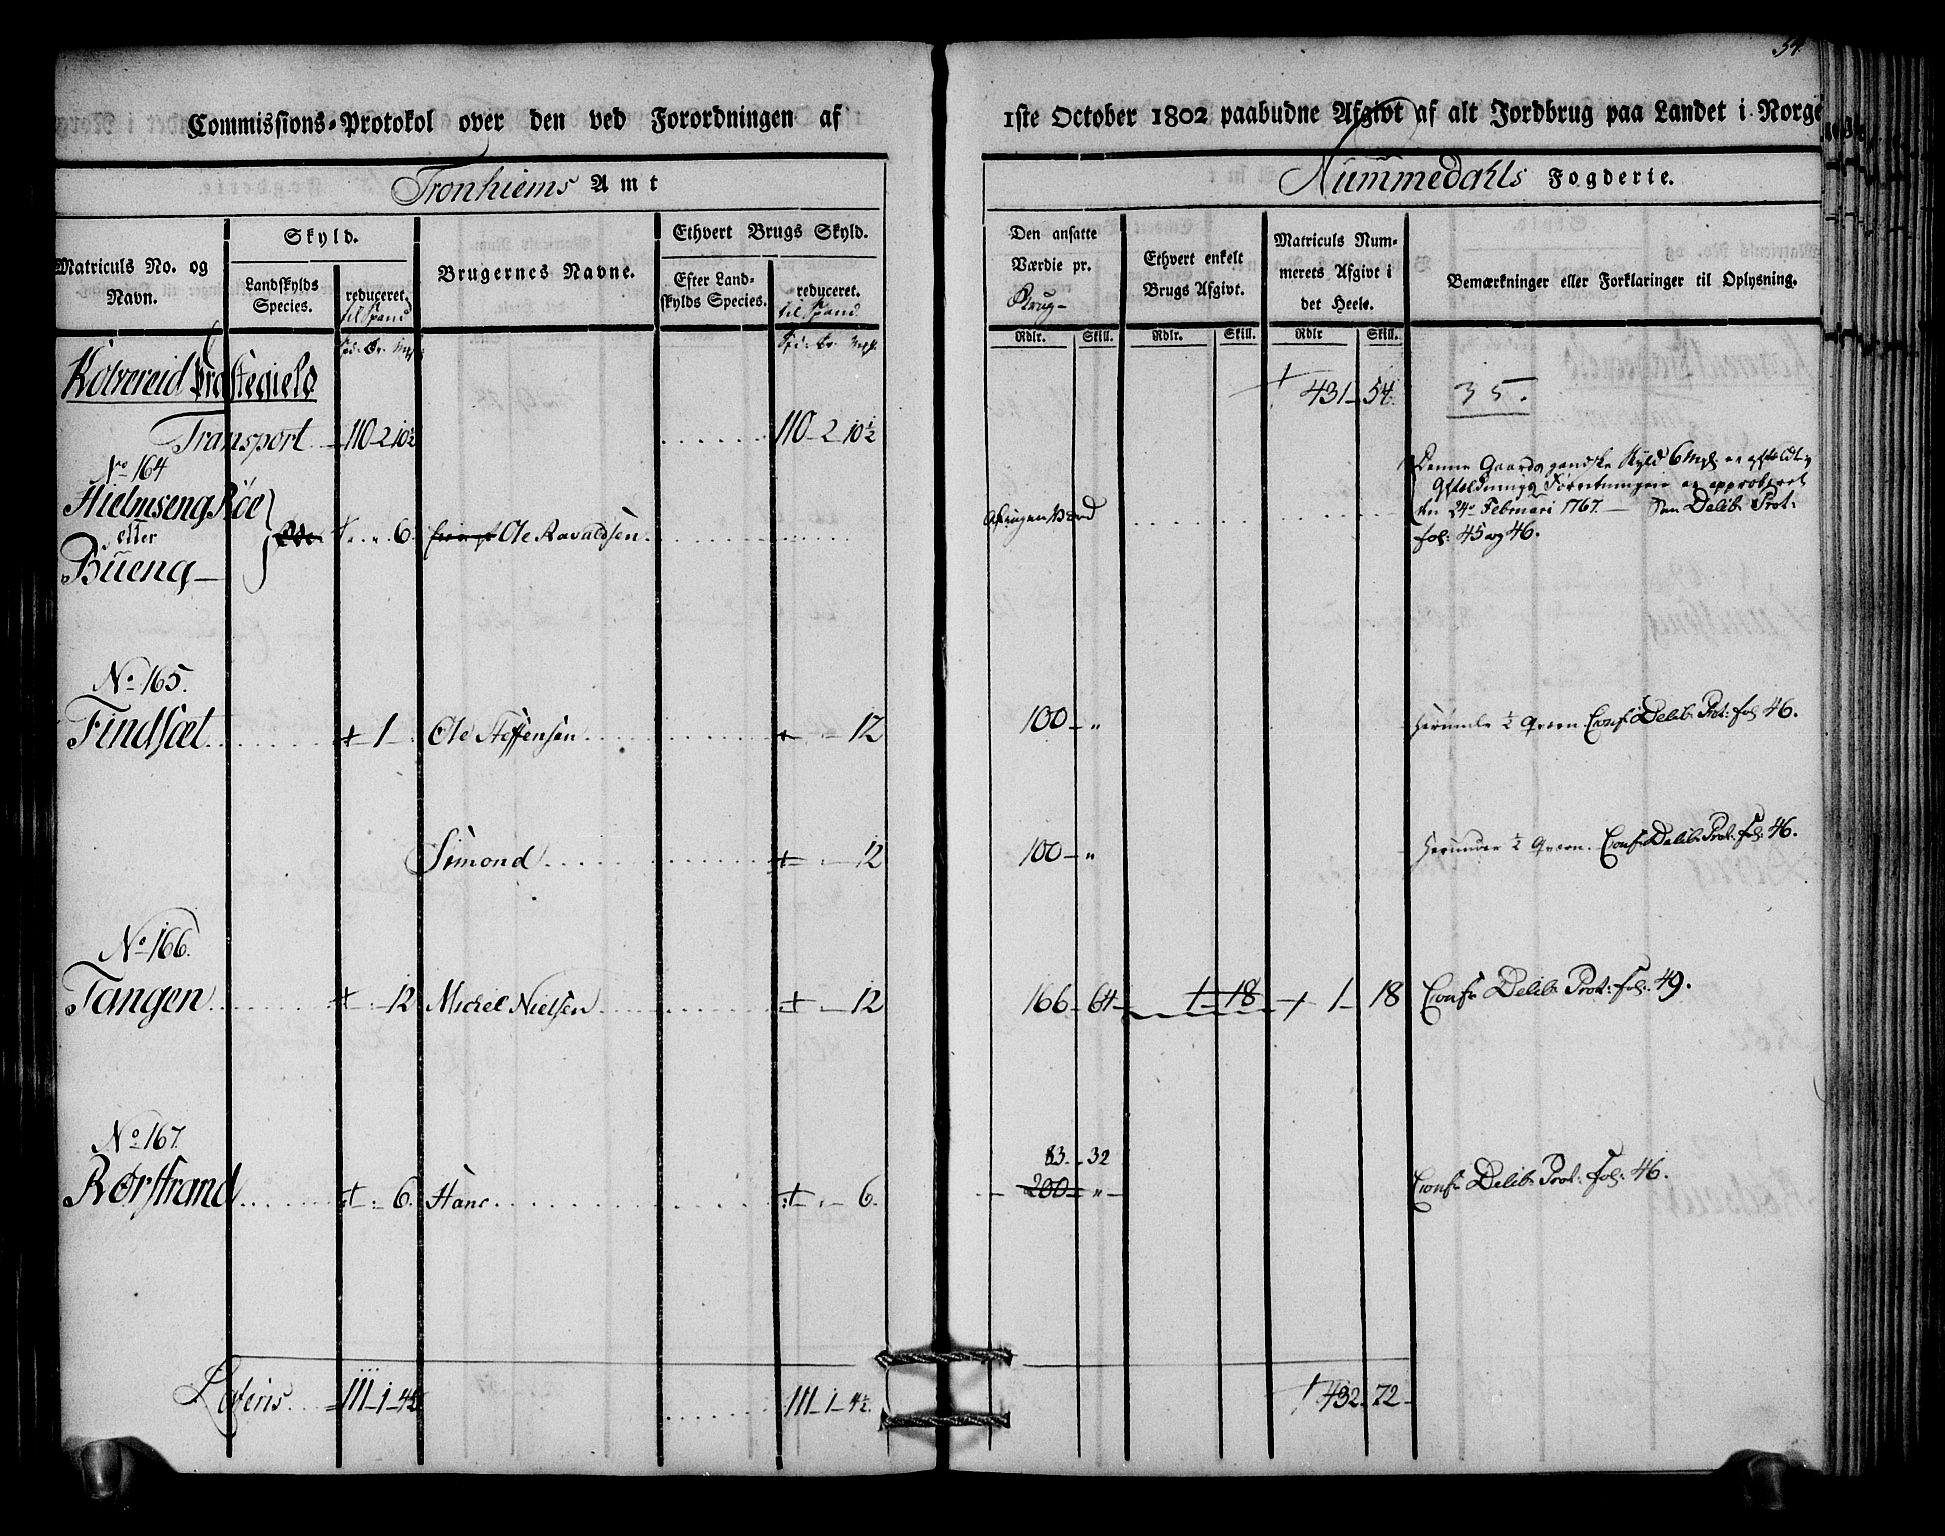 54.
Commissions-Protokol over den ved Forordningen af 1ste October 1802 paabudne Afgivt af alt Jordbrug paa Landet i Norge
Tronhiems Amt
Nummedahls Fogderie.
Matriculs No. og Navn.
Skyld.
Landskylds Species.
reduceret.
til Spand
Brugernes Navne.
Ethvert Brugs Skyld.
Efter Landskylds Species.
reduceret.
til Spand
Den ansatte Værdie pr.
Brug-
Ethvert enkelt Brugs Afgivt.
Matriculs Nummerets Afgivt i det Heele.
Bemærkninger eller Forklaringer til Oplysning.
Rdlr. Skill. Rdlr. Skill. Rdlr Skill.
Kolvereid Præstegield
431 - 54.
35.
Transport 110 2 10½ 110 - 2 10½
No 164
Hielmseng Röe
eller
Bueng
6. Ole Ravaldsen
Denne Gaards gandske Skyld 6 Mk er
den 24de Februari 1767. Delib: Prot:
fol: 45 og 46.
No 165.
Findsæt 1 Ole Steffensen 12 100 - " ½ Qværn. Conf: Delib: Prot: fol 46.
Simond 12 100 - " Herunder ½ Qværn. Conf: Delib: Prot: fol: 46.
No 166.
Tangen 12 Mickel Nielsen 12 166 - 64 1 - 18 1 - 18 Conf: Delib: Prot: fol: 49.
No 167.
83 - 32
Rörstrand 6. Hans 6. 200 - " Conf: Delib: Prot: fol: 46.
Lateris 111 - 1 - 4½ 111 - 1 - 4½ 432. 72